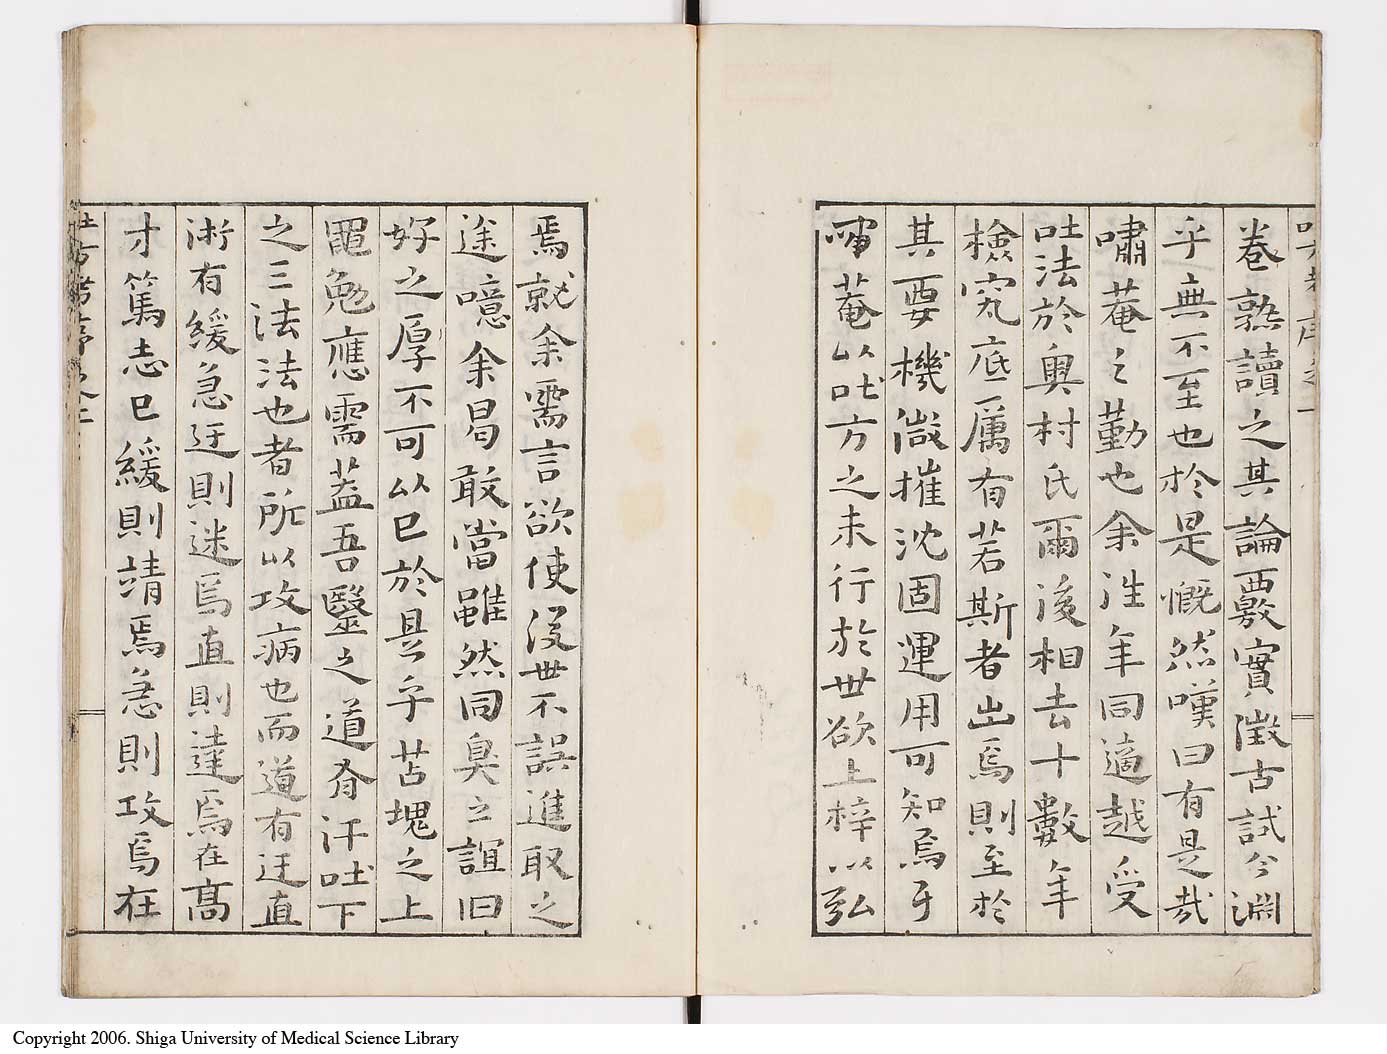 卷熟讀之其論覈實徵古試今淵
乎無不至也於是慨然嘆曰有是哉
嘯菴之勤也余往年同適越受
吐法於奧村氏爾後相去十數年
檢究底厲有若斯者出焉則至於
其要機微摧沈固運用可知焉于
嘯菴以吐方之未行於世欲上梓以弘
焉就余需言欲使後世不誤進取之
途噫余曷敢當雖然同臭之誼旧
好之厚不可以已於是乎苫塊之上
黽勉應需蓋吾醫之道有汗吐下
之三法法也者所以攻病也而道有迂直
術有緩急迂則迷焉直則達焉在高
才篤志已緩則靖焉急則攻焉在
吐方考序 二
Copyright 2006. Shiga University of Medical Science Library